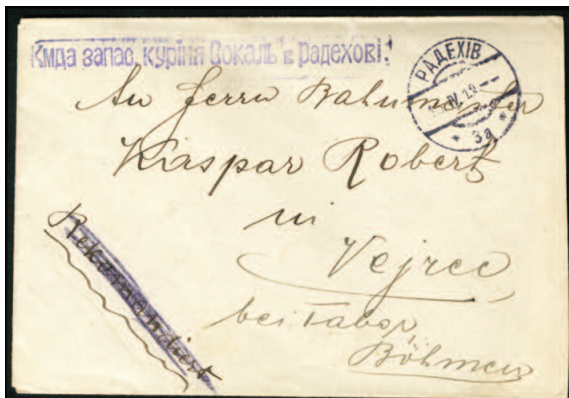 Кмда запас. куріня Сокаль в Радехові.
РАДЕХІВ
IV. 19
* 3a *
An Herrn Bahnmeister
Kaspar Robert
in
Vejrec,
bei Tabor,
Böhmen
Rekomandiert